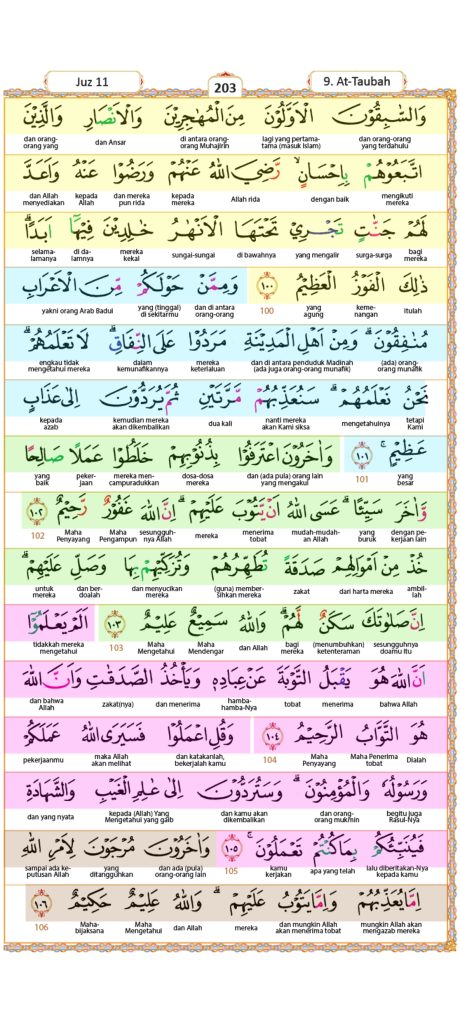 Juz 11
203
9. At-Taubah
وَالسّٰبِقُوْنَ الْاَوَّلُوْنَ مِنَ الْمُهٰجِرِيْنَ وَالْاَنْصَارِ وَالَّذِيْنَ
dan orang- dan Ansar di antara orang- lagi yang pertama- dan orang-orang
orang yang orang Muhajirin tama (masuk Islam) yang terdahulu
اتَّبَعُوْهُمْ بِاِحْسَانٍۙ رَّضِيَ اللّٰهُ عَنْهُمْ وَرَضُوْا عَنْهُ وَاَعَدَّ
dan Allah kepada dan mereka kepada Allah rida dengan baik mengikuti
menyediakan Allah pun rida mereka mereka
لَهُمْ جَنّٰتٍ تَجْرِيْ تَحْتَهَا الْاَنْهٰرُ خٰلِدِيْنَ فِيْهَآ اَبَدًاۗ
selama- di da- mereka sungai-sungai di bawahnya yang mengalir surga-surga bagi
lamanya lamnya kekal mereka
ذٰلِكَ الْفَوْزُ الْعَظِيْمُ ۝١٠٠ وَمِمَّنْ حَوْلَكُمْ مِّنَ الْاَعْرَابِ
yakni orang Arab Badui yang (tinggal) dan di antara 100 yang keme- itulah
di sekitarmu orang-orang agung nangan
مُنٰفِقُوْنَۗ وَمِنْ اَهْلِ الْمَدِيْنَةِ مَرَدُوْا عَلَى النِّفَاقِۗ لَا تَعْلَمُهُمْۗ
engkau tidak dalam mereka dan di antara penduduk Madinah (ada) orang-
mengetahui mereka kemunafikannya keterlaluan (ada juga orang-orang munafik) orang munafik
نَحْنُ نَعْلَمُهُمْۗ سَنُعَذِّبُهُمْ مَّرَّتَيْنِ ثُمَّ يُرَدُّوْنَ اِلٰى عَذَابٍ
kepada kemudian mereka dua kali nanti mereka mengetahuinya tetapi
azab akan dikembalikan akan Kami siksa Kami
عَظِيْمٍۚ ۝١٠١ وَاٰخَرُوْنَ اعْتَرَفُوْا بِذُنُوْبِهِمْ خَلَطُوْا عَمَلًا صَالِحًا
yang peker- mereka men- dosa-dosa dan (ada pula) orang lain 101 yang
baik jaan campuradukkan mereka yang mengakui besar
وَّاٰخَرَ سَيِّئًاۗ عَسَى اللّٰهُ اَنْ يَّتُوْبَ عَلَيْهِمْۗ اِنَّ اللّٰهَ غَفُوْرٌ رَّحِيْمٌ ۝١٠٢
102 Maha Maha sesungguh- mereka menerima mudah-mudah- yang dengan pe-
Penyayang Pengampun nya Allah tobat an Allah buruk kerjaan lain
خُذْ مِنْ اَمْوَالِهِمْ صَدَقَةً تُطَهِّرُهُمْ وَتُزَكِّيْهِمْ بِهَا وَصَلِّ عَلَيْهِمْۗ
untuk dan ber- dan menyucikan (guna) member- zakat dari harta mereka ambil-
mereka doalah mereka sihkan mereka lah
اِنَّ صَلٰوتَكَ سَكَنٌ لَّهُمْۗ وَاللّٰهُ سَمِيْعٌ عَلِيْمٌ ۝١٠٣ اَلَمْ يَعْلَمُوْٓا
tidakkah mereka 103 Maha Maha dan Allah bagi (menumbuhkan) sesungguhnya
mengetahui Mengetahui Mendengar mereka ketenteraman doamu itu
اَنَّ اللّٰهَ هُوَ يَقْبَلُ التَّوْبَةَ عَنْ عِبَادِهٖ وَيَأْخُذُ الصَّدَقٰتِ وَاَنَّ اللّٰهَ
dan bahwa zakat(nya) dan menerima hamba- tobat menerima bahwa Allah
Allah hamba-Nya
هُوَ التَّوَّابُ الرَّحِيْمُ ۝١٠٤ وَقُلِ اعْمَلُوْا فَسَيَرَى اللّٰهُ عَمَلَكُمْ
pekerjaanmu maka Allah dan katakanlah, 104 Maha Maha Penerima Dialah
akan melihat bekerjalah kamu Penyayang tobat
وَرَسُوْلُهٗ وَالْمُؤْمِنُوْنَۗ وَسَتُرَدُّوْنَ اِلٰى عٰلِمِ الْغَيْبِ وَالشَّهَادَةِ
dan yang nyata kepada (Allah) Yang dan kamu akan dan orang- begitu juga
Mengetahui yang gaib dikembalikan orang mukmin Rasul-Nya
فَيُنَبِّئُكُمْ بِمَا كُنْتُمْ تَعْمَلُوْنَۚ ۝١٠٥ وَاٰخَرُوْنَ مُرْجَوْنَ لِاَمْرِ اللّٰهِ
sampai ada ke- yang dan ada (pula) 105 kamu apa yang telah lalu diberitakan-Nya
putusan Allah ditangguhkan orang-orang lain kerjakan kepada kamu
اِمَّا يُعَذِّبُهُمْ وَاِمَّا يَتُوْبُ عَلَيْهِمْۗ وَاللّٰهُ عَلِيْمٌ حَكِيْمٌ ۝١٠٦
106 Maha- Maha dan Allah mereka dan mungkin Allah mungkin Allah akan
bijaksana Mengetahui akan menerima tobat mengazab mereka